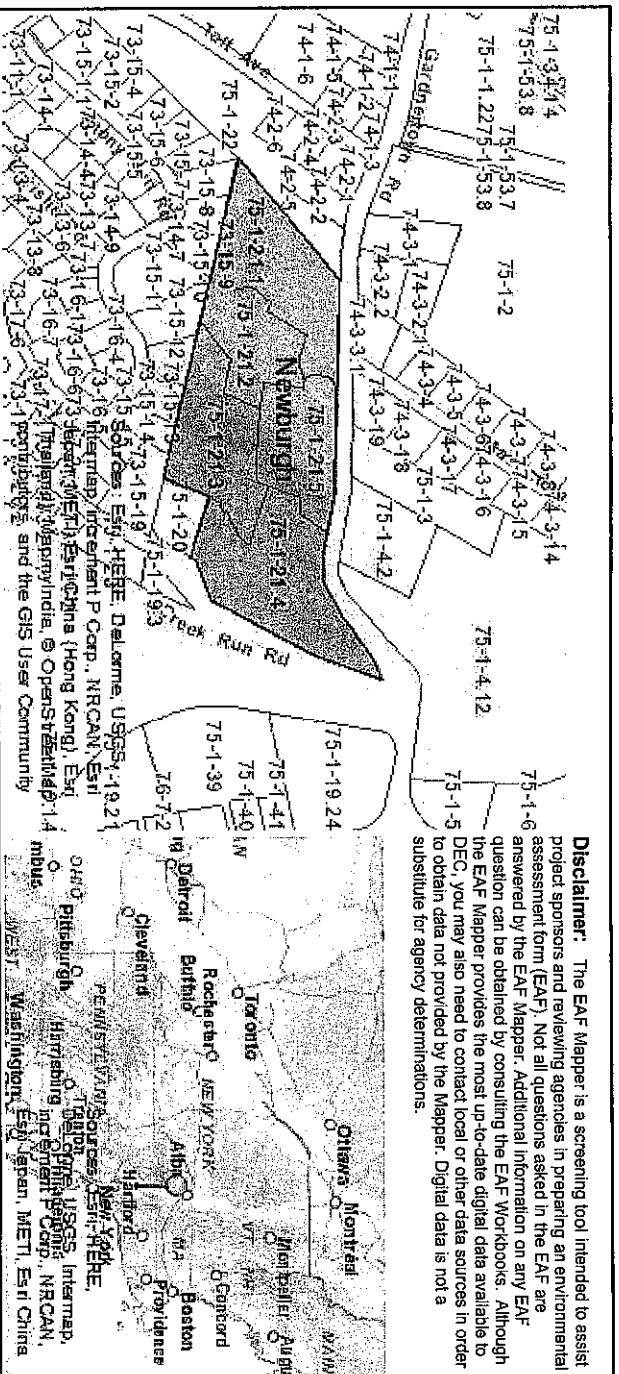 Disclaimer: The EAF Mapper is a screening tool intended to assist
project sponsors and reviewing agencies in preparing an environmental
assessment form (EAF). Not all questions asked in the EAF are
answered by the EAF Mapper. Additional information on any EAF
question can be obtained by consulting the EAF Workbooks. Although
the EAF Mapper provides the most up-to-date digital data available to
DEC, you may also need to contact local or other data sources in order
to obtain data not provided by the Mapper. Digital data is not a
substitute for agency determinations.
75-1-53.8
75-1-1.22
75-1-53.7
75-1-53.8
75-1-2
Gardnertown Rd
74-1-1
74-1-2
74-1-3
74-1-5
74-1-6
74-2-1
74-2-2
74-2-3
74-2-4
74-2-5
74-2-6
Taft Ave
74-3-1
74-3-2.1
74-3-2.2
74-3-3.1
74-3-4
74-3-5
74-3-6
74-3-7
74-3-8
74-3-14
74-3-15
74-3-16
74-3-17
74-3-18
74-3-19
75-1-3
75-1-4.2
75-1-4.12
75-1-6
75-1-5
75-1-22
75-1-21.1
75-1-21.2
75-1-21.3
75-1-21.4
75-1-21.5
Newburgh
75-1-20
75-1-19.3
Creek Run Rd
75-1-19.24
75-1-41
75-1-40
75-1-39
76-7-2
73-15-1
73-15-2
73-15-4
73-15-5
73-15-6
73-15-7
73-15-8
73-15-9
73-15-11
73-15-12
73-15-19
73-14-1
73-14-4
73-14-7
73-14-9
73-13-6
73-13-7
73-13-8
73-16-1
73-16-4
73-16-6
73-16-7
73-17-6
73-11-1
Sources: Esri, HERE, DeLorme, USGS,
Intermap, increment P Corp., NRCAN, Esri
Japan, METI, Esri China (Hong Kong), Esri
(Thailand), MapmyIndia, © OpenStreetMap
contributors, and the GIS User Community
Ottawa
Montréal
Toronto
MAIN
Montpelier
Augu
VT
Rochester
Buffalo
NEW YORK
Concord
Detroit
Alb
MA
Boston
Cleveland
Hartford
Providence
PENNSYLVANIA
New York
OHIO
Pittsburgh
Harrisburg
Trenton
Philadelphia
mbus
WEST
Washington
Sources: Esri, HERE,
DeLorme, USGS, Intermap,
increment P Corp., NRCAN,
Esri Japan, METI, Esri China